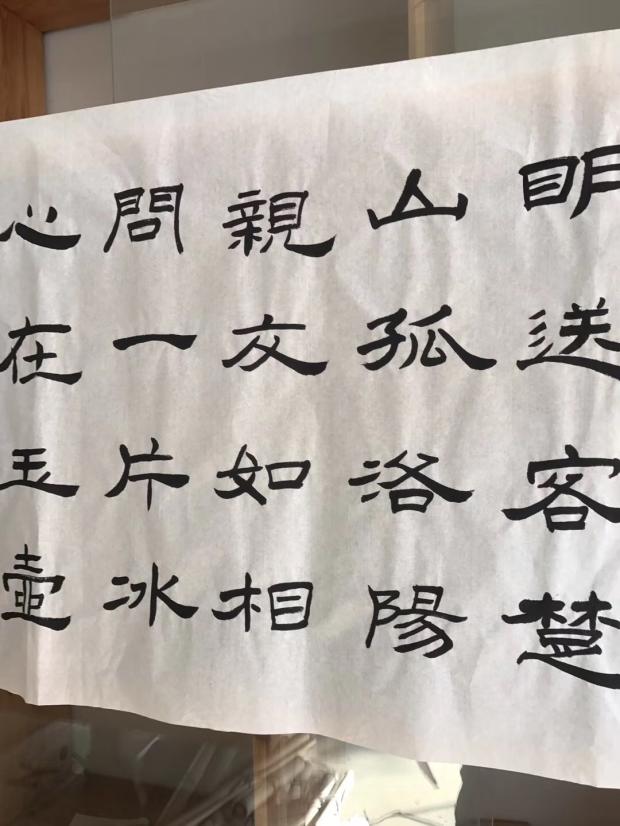 明送客楚
山孤洛陽
親友如相
問一片冰
心在玉壺